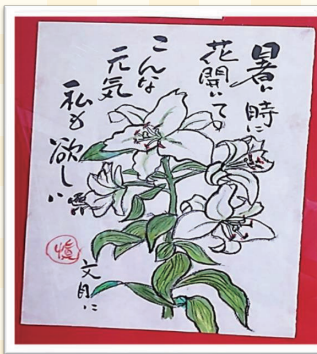 暑い時に
花開いてる
こんな
元気
私も欲しい
文月に